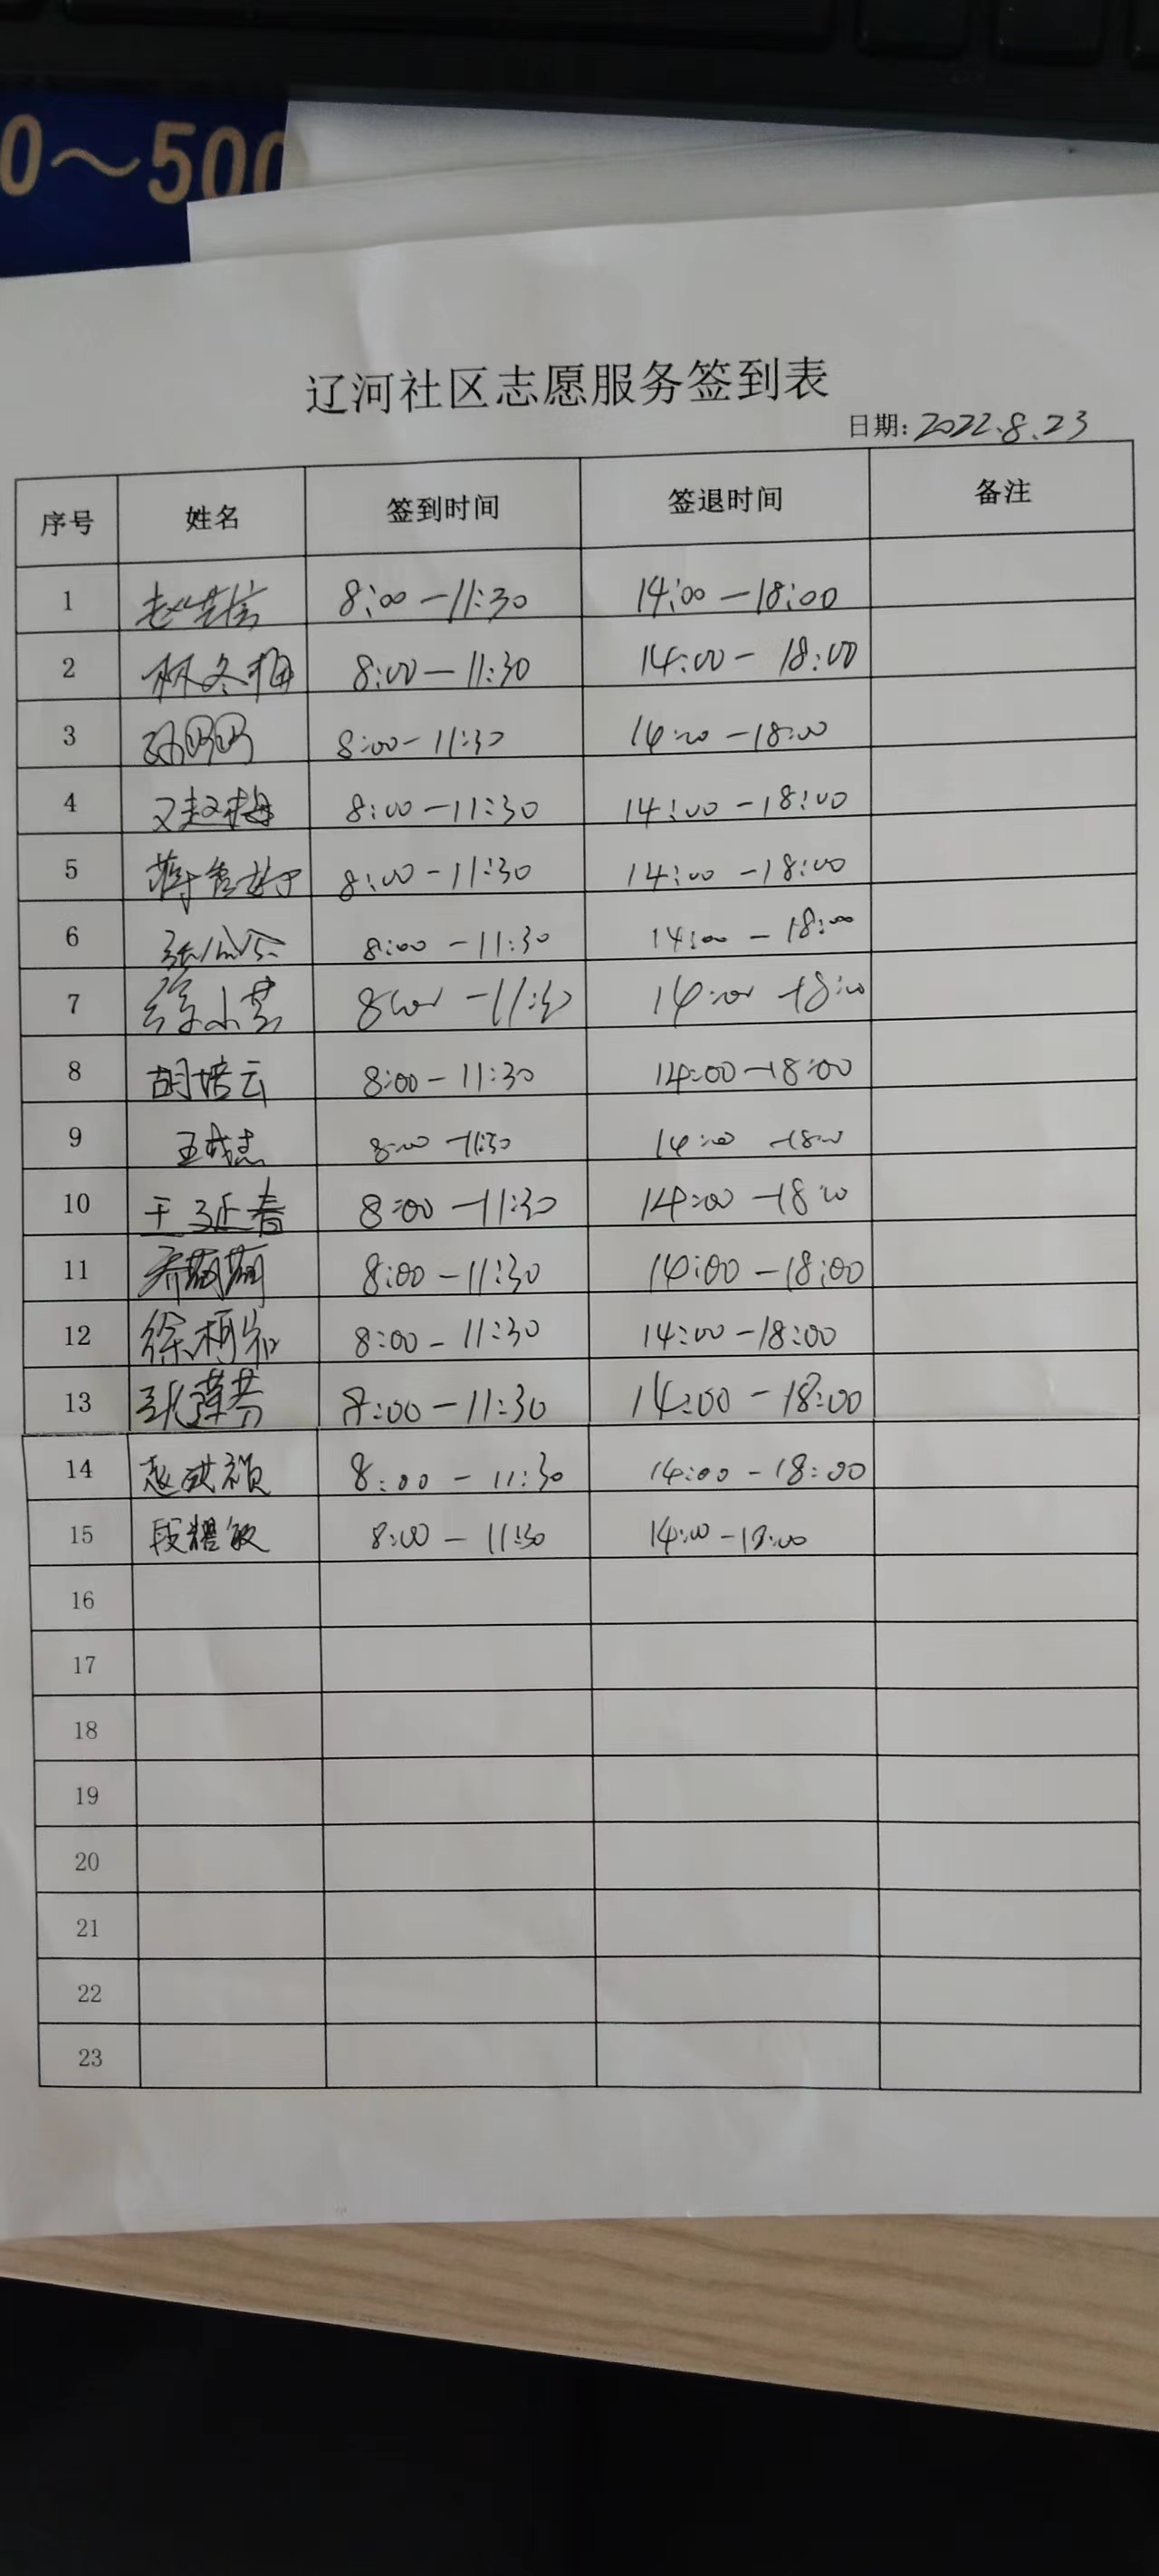 0～500
辽河社区志愿服务签到表
日期: 2022.8.23
序号 姓名 签到时间 签退时间 备注
1 8:00-11:30 14:00-18:00
2 林冬梅 8:00-11:30 14:00-18:00
3 8:00-11:30 14:00-18:00
4 8:00-11:30 14:00-18:00
5 8:00-11:30 14:00-18:00
6 8:00-11:30 14:00-18:00
7 8:00-11:30 14:00-18:00
8 胡培云 8:00-11:30 14:00-18:00
9 8:00-11:30 14:00-18:00
10 王延春 8:00-11:30 14:00-18:00
11 乔萌萌 8:00-11:30 14:00-18:00
12 8:00-11:30 14:00-18:00
13 8:00-11:30 14:00-18:00
14 8:00-11:30 14:00-18:00
15 段耀敏 8:00-11:30 14:00-18:00
16
17
18
19
20
21
22
23